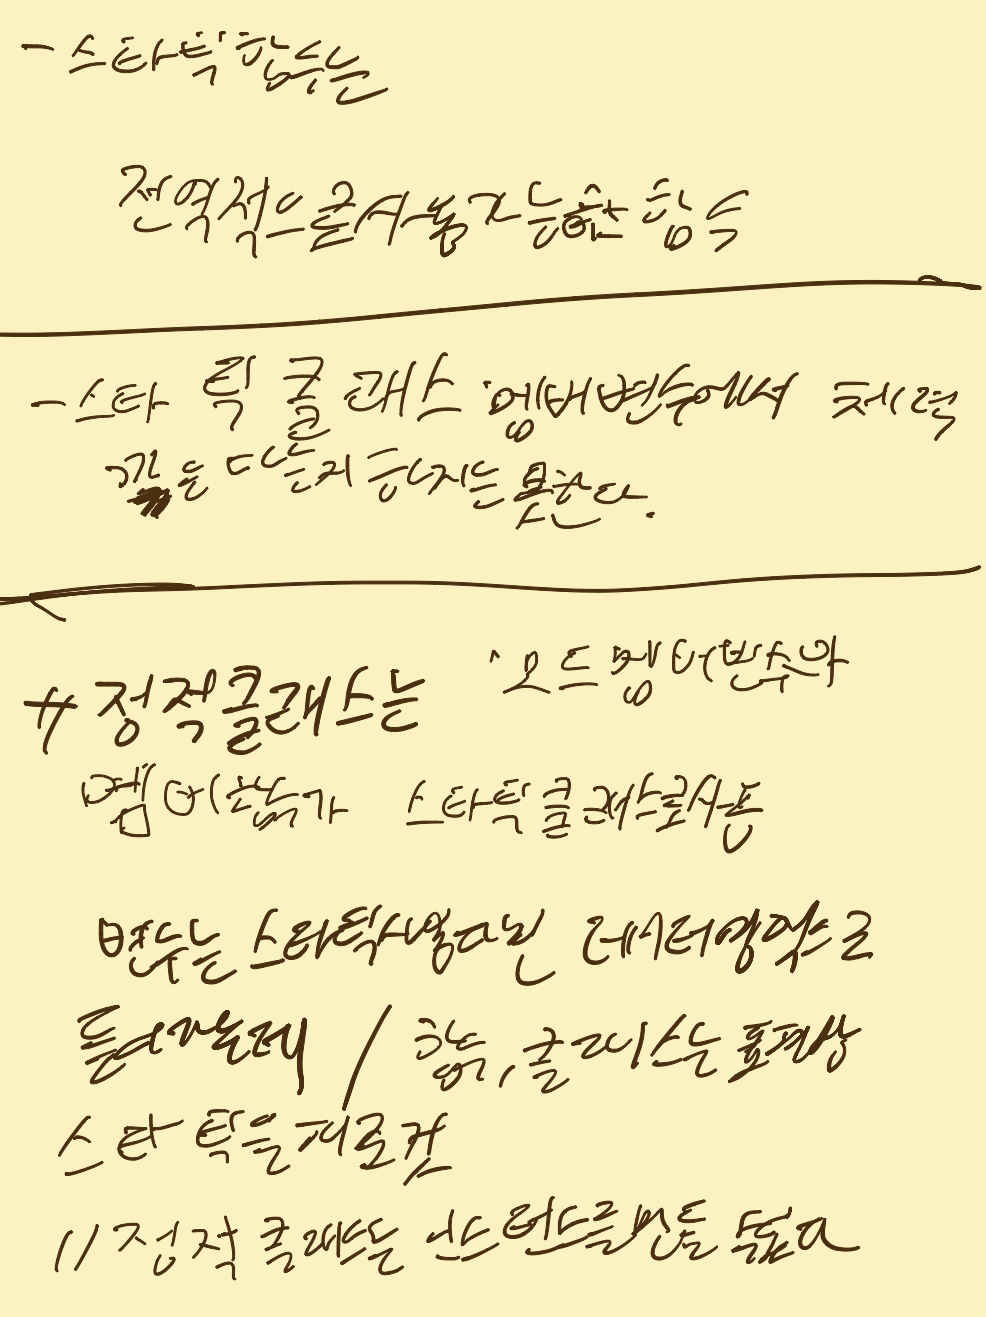 - 스타틱 함수는
전역적으로 사용가능한 함수
- 스타틱 클래스 멤버변수에서 객체
값은 다른지 는 못한다.
+ 정적클래스는 모든 멤버변수와
멤버함수가 스타틱 클래스로 사용
변수는 스타틱 사용하면 데이터영역으로
들어가는데 / 함수, 클래스는 항상
스타틱을 제로컷
// 정적 클래스는 인스턴스를 만들 수 없다